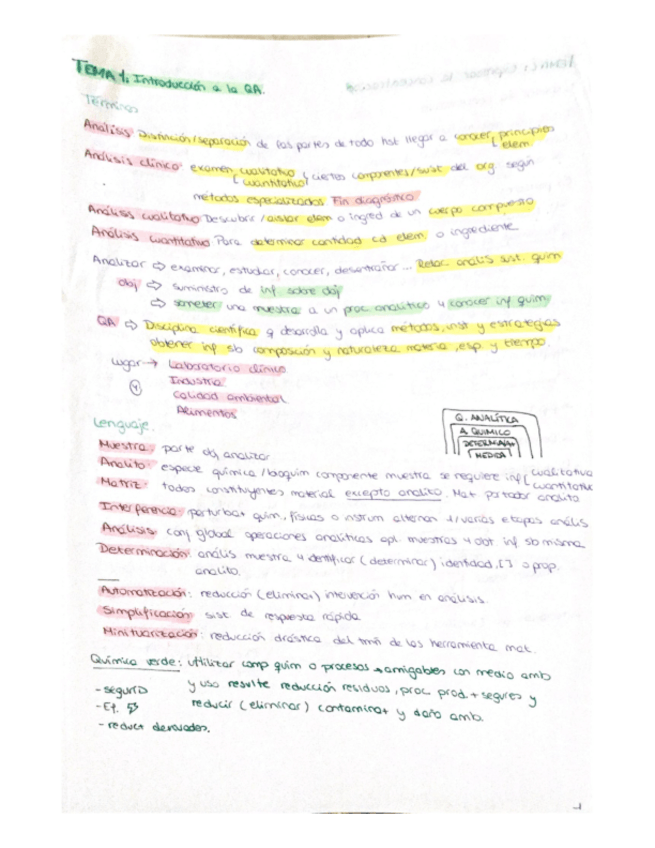 TEMA 1. Introducción a la QA.
Términos
Análisis: Distinción/separación de las partes de todo hat llegar a conocer principios
elem.
Análisis clínico: examen cualitativo y ciertos componentes/sust del org. según
cuantitativo
métodos especializados Fin diagnóstico
Análisis cualitativo Descubrir/aislar elem o ingred de un cuerpo compuesto
Análisis cuantitativo Para determinar cantidad cd elem. o ingrediente
Analizar ⇨ examinar, estudiar, conocer, desentrañar ... Relac. anális sust. quim
obj ⇨ suministro de inf. sobre obj
⇨ someter una muestra a un proc. analítico y conocer inf quim
QA ⇨ Disciplina científica q desarrolla y aplica métodos, inst y estrategias
obtener inf sb composición y naturaleza materia, esp. y tiempo.
Lugar → Laboratorio clínico
④ Industria
Calidad ambiental
Alimentos
Lenguaje.
Q. ANALÍTICA
A. QUIMICO
DETERMINA+
MEDIDA
Muestra: parte obj analizar
Analito: especie química/bioquim componente muestra se requiere inf cualitativa
cuantitativa
Matriz: todos constituyentes material excepto analito. Mat portador analito
Interferencia: perturba+ quim, físicas o instrum alteran 1/varias etapas anális
Análisis: conj global operaciones analíticas apl. muestras y obt. inf sb misma
Determinación: anális muestra y identificar (determinar) identidad, [ ] o prop.
analito.
Automatización: reducción (elimina+) intevención hum en análisis.
Simplificación: sist de respuesta rápida.
Minituarización: reducción drástica del tmñ de las herramienta mat.
Química verde: utilizar comp quim o procesos + amigables con medio amb
- segurid y uso resulte reducción residuos, proc. prod. + seguros y
- Ef. reducir (eliminar) contamina+ y daño amb.
- reduct derivados.